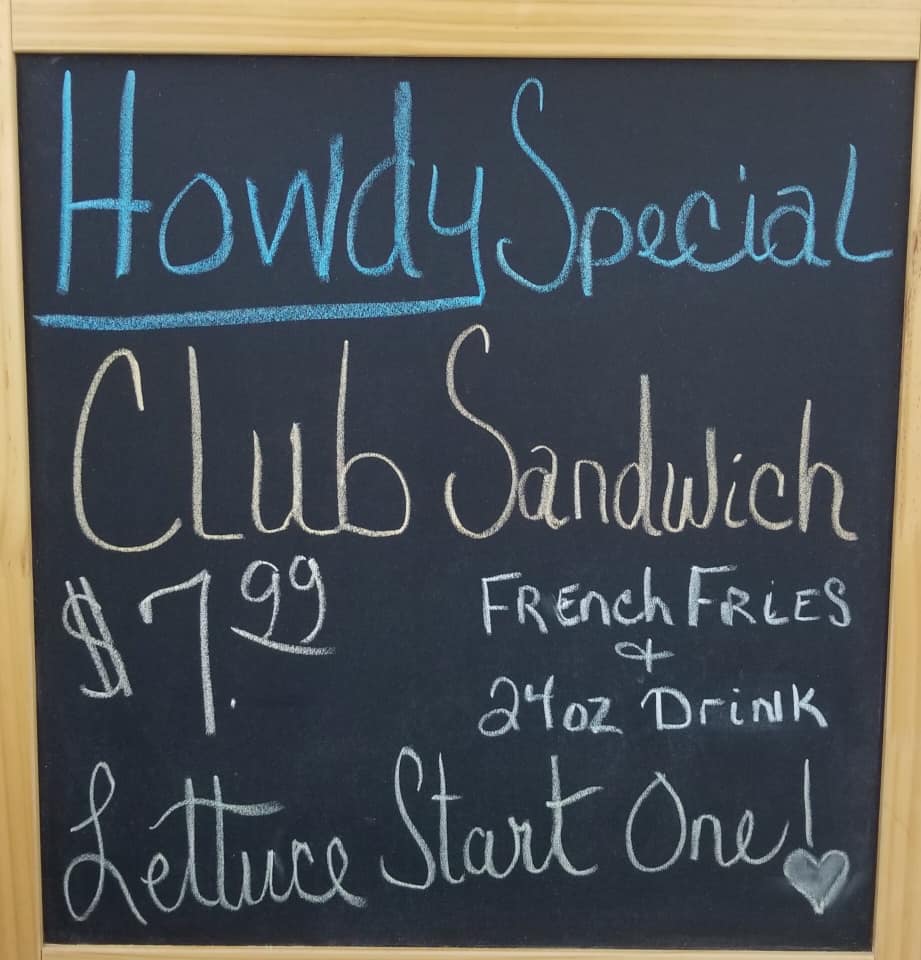 Howdy Special
Club Sandwich
$7.99
French Fries
&
24oz Drink
Lettuce Start One!